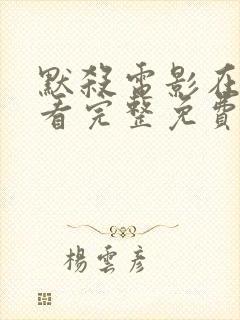 默殺電影在
看完整免費
楊雲彥